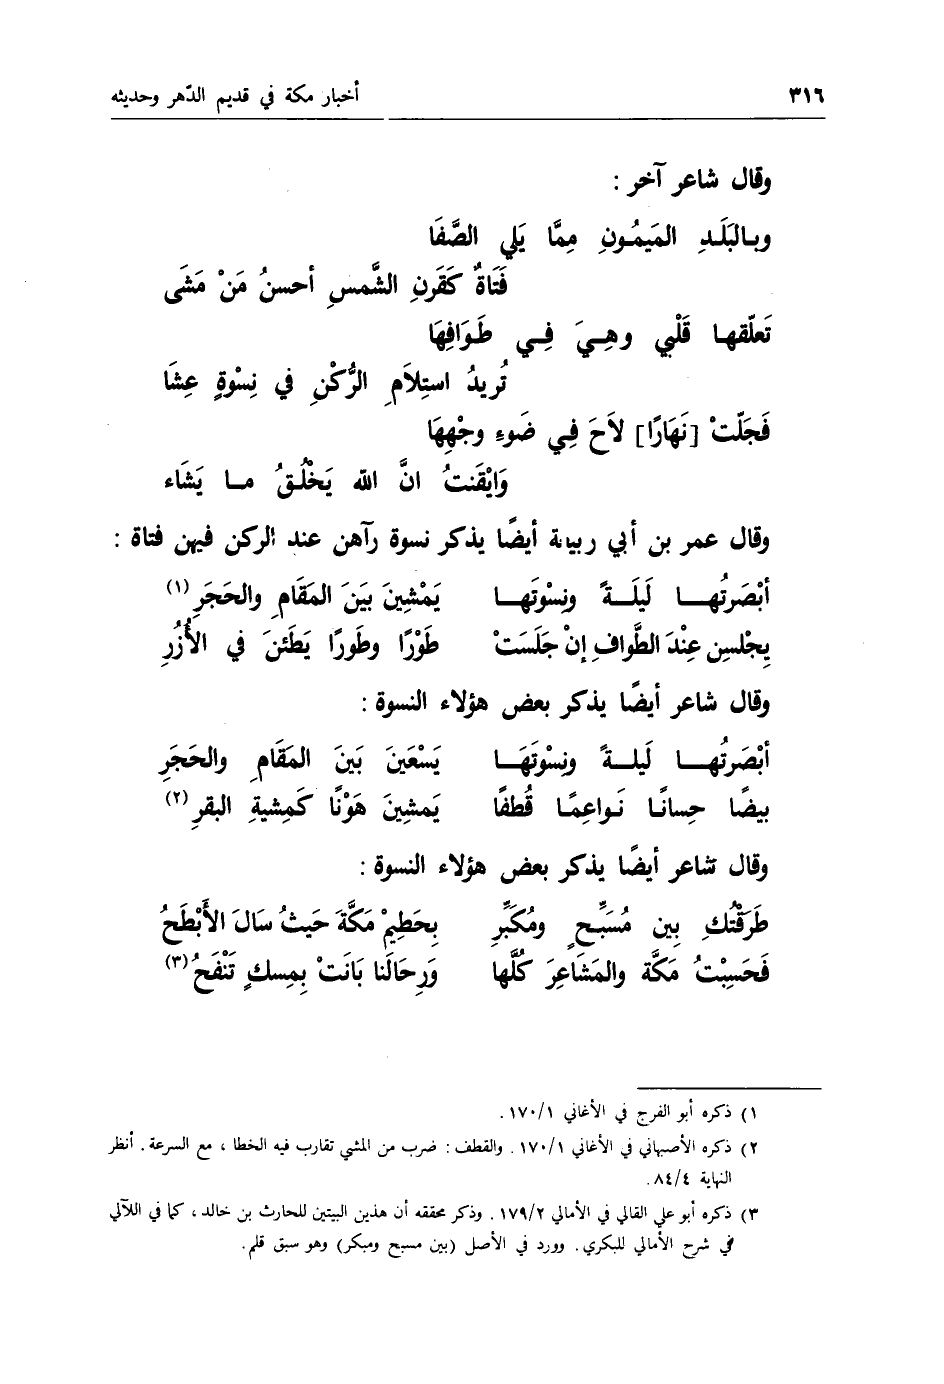 ٣١٦ أخبار مكة في قديم الدّهر وحديثه
وقال شاعر آخر :
وبـالبَلَـدِ الـمَيمُـونِ مِمَّا يَلي الصَّفَا
فَتَاةٌ كَقَرنِ الشَّمسِ أحسنُ مَنْ مَشَى
تَعلّقهـا قَلْبي وهـيَ فِـي طَـوَافِهَا
تُريدُ استِلاَمِ الرُّكْنِ في نِسْوةٍ عِشَا
فَجَلّتْ [نَهَارًا] لاَحَ فِـي ضَوءِ وجْهِهَا
وَايْقَنتُ انَّ الله يَخْلُـقُ مـا يَشَاء
وقال عمر بن أبي ربيعة أيضًا يذكر نسوة رآهن عند الركن فيهن فتاة :
أبْصَرتُهـــا لَيلَــةً ونِسْوتَهـــا يَمْشِينَ بَينَ المَقَامِ والحَجَرِ (١)
يجْلسِن عِنْدَ الطَّوافِ إنْ جَلَسَتْ طَوْرًا وطَورًا يَطَئنَ في الأُزُرِ
وقال شاعر أيضًا يذكر بعض هؤلاء النسوة :
أبْصَرتُهـــا لَيلــةً ونِسْوتَهَــا يَسْعَينَ بَينَ المَقَامِ والحَجَرِ
بيضًا حِسانًـا نَـواعِمًـا قُطفًا يَمشِينَ هَوْنًا كَمِشيةِ البقرِ (٢)
وقال شاعر أيضًا يذكر بعض هؤلاء النسوة :
طَرَقْتُكِ بين مُسَبِّـحٍ ومُكَبِّرِ بِحَطِيمْ مَكَّةَ حَيثُ سَالَ الأَبْطَحُ
فَحَسِبْتُ مَكَّة والمَشَاعِرَ كُلَّها وَرِحَالَنا بَانَتْ بِمِسكٍ تَنْفَحُ (٣)
١) ذكره أبو الفرج في الأغاني ١٧٠/١ .
٢) ذكره الأصبهاني في الأغاني ١٧٠/١ . والقطف : ضرب من المشي تقارب فيه الخطا ، مع السرعة . أنظر
النهاية ٨٤/٤ .
٣) ذكره أبو علي القالي في الأمالي ١٧٩/٢ . وذكر محققه أن هذين البيتين للحارث بن خالد ، كما في اللآلي
في شرح الأمالي للبكري . وورد في الأصل (بين مسبح ومبكر) وهو سبق قلم .